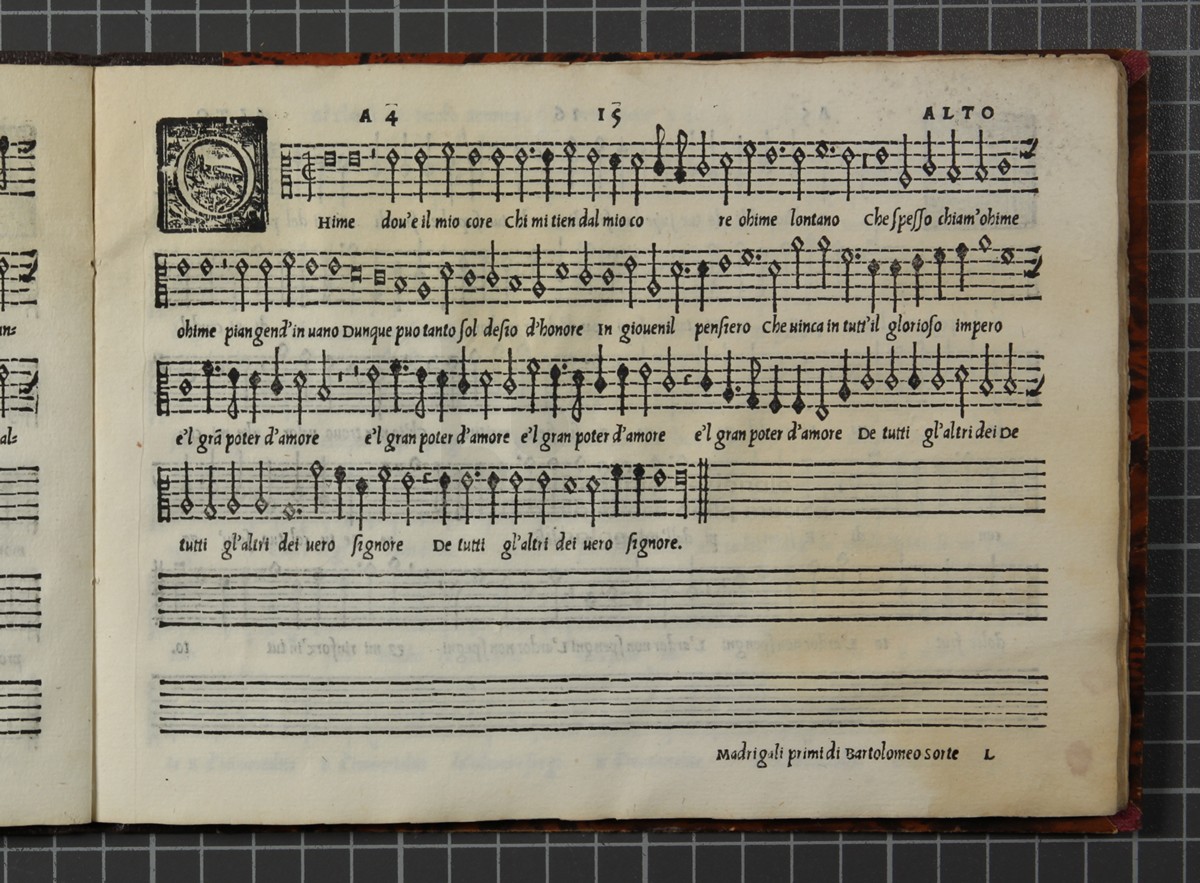 A 4 15 ALTO
OHime dou'e il mio core Chi mi tien dal mio co re ohime lontano Che speſſo chiam'ohime
ohime piangend'in uano Dunque puo tanto ſol deſio d'honore In giouenil penſiero Che uinca in tutt'il glorioſo impero
e'l grā poter d'amore e'l gran poter d'amore e'l gran poter d'amore e'l gran poter d'amore De tutti gl'altri dei De
tutti gl'altri dei uero ſignore De tutti gl'altri dei uero ſignore.
Madrigali primi di Bartolomeo Sorte L